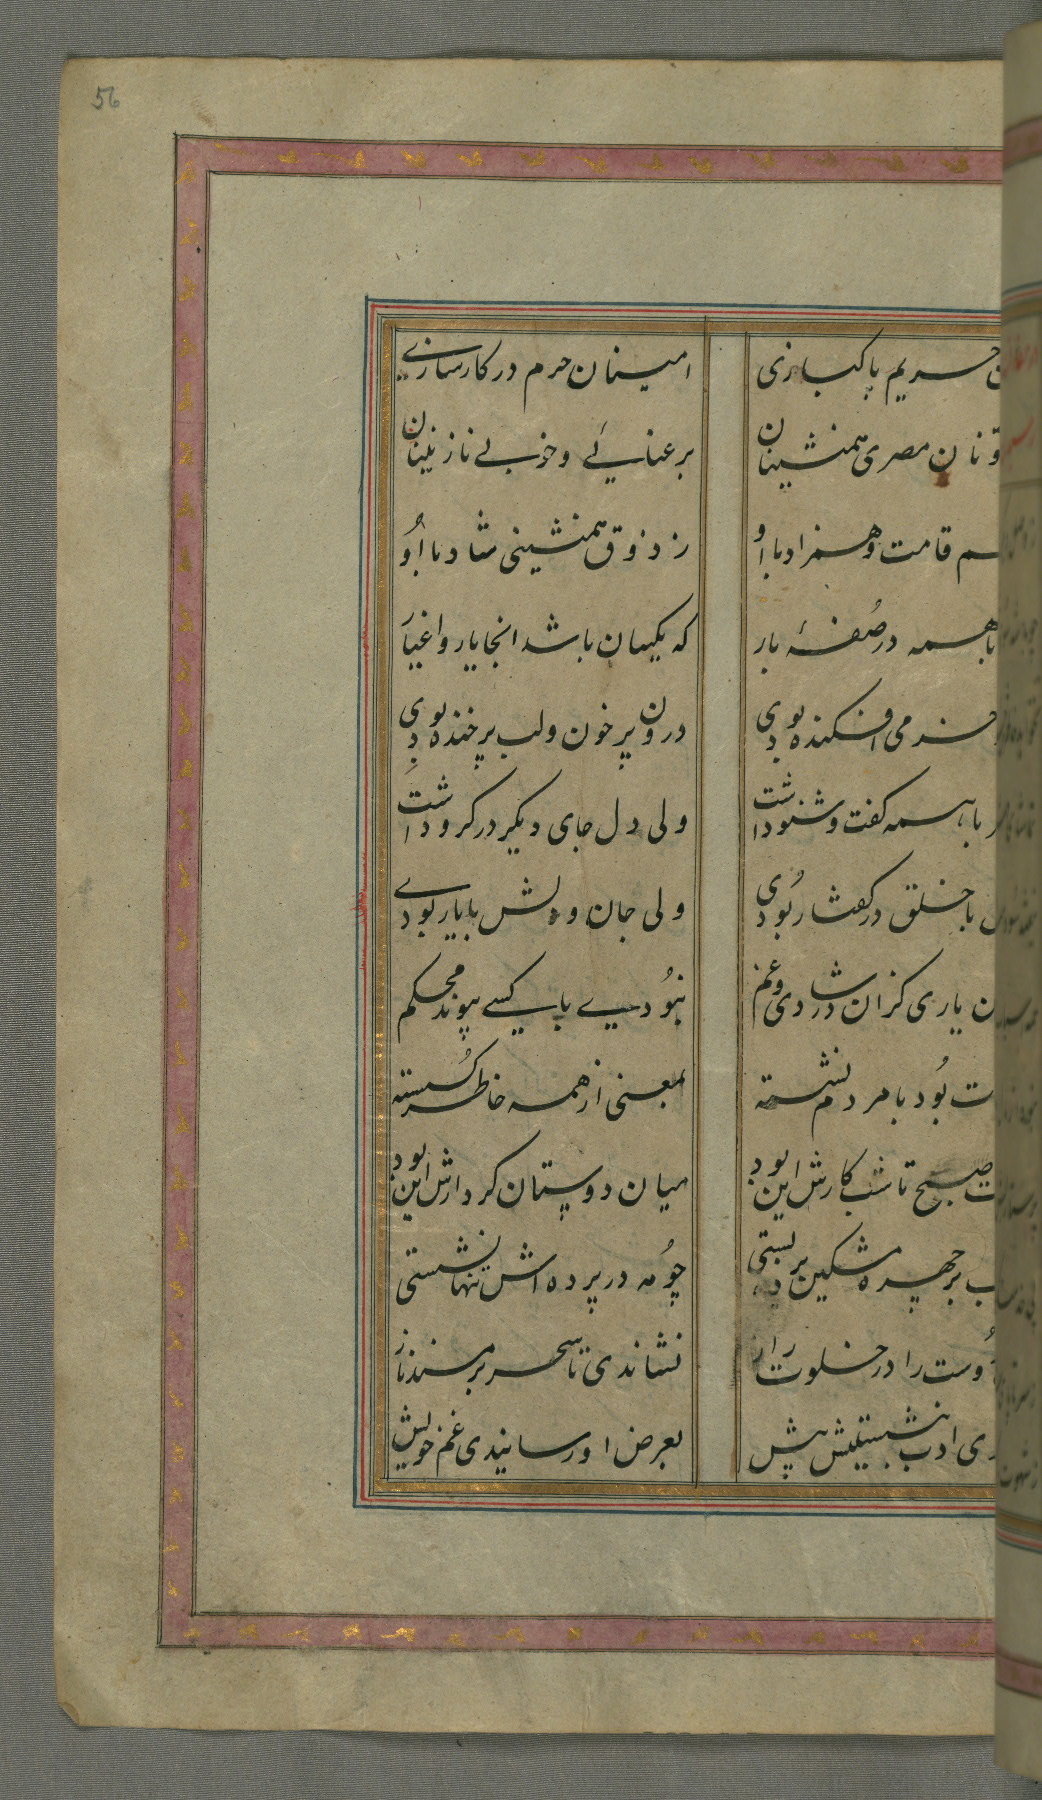 56
حریم پاکبازی امینان حرم در کارسازی
تونان مصری همنشینان برعنایی و خوبی نازنینان
قامت و همزاد با او ز ذوق همنشینی شاد با او
با همه در صفهٔ بار که یکسان باشد انجا یار و اغیار
می افکنده بودی درون پر خون و لب پر خنده بودی
با همه گفت و شنو داشت ولی دل جای دیگر در گرو داشت
با خلق در گفتار بودی ولی جان و دلش با یار بودی
یاری کزان در شادی و غم نبودی با کسی پیوند محکم
بود با مردم نشسته بمعنی از همه خاطر گسسته
صبح تا شب کارش این بود میان دوستان کردارش این بود
بر چهره مشکین بر بستی چو مه در پرده اش تنها نشستی
دوست را در خلوت راز نشاندی تا سحر بر مسند ناز
ادب بنشستیش پیش بعرض او رسانیدی غم خویش